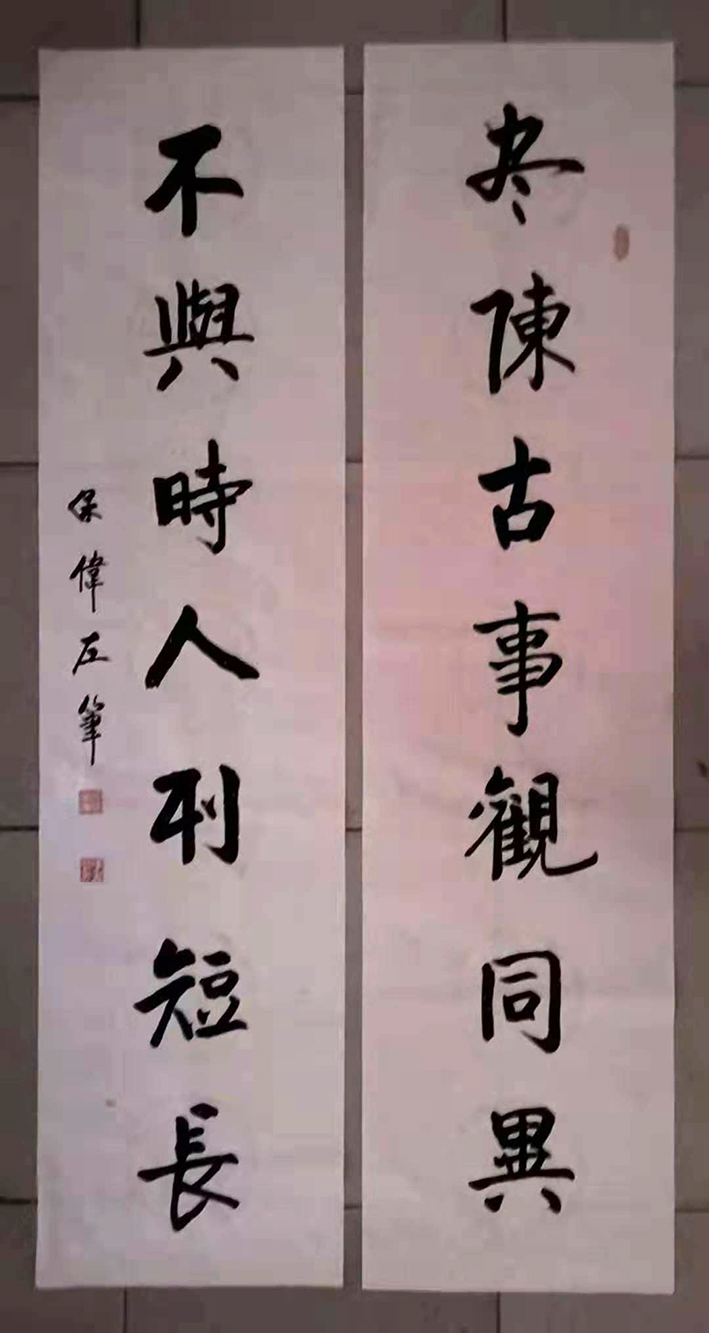 尽陳古事觀同異
不與時人刊短長
保偉左筆